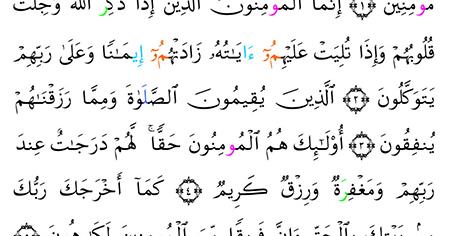 مُومِنِينَ ۝١ إِنَّمَا اَ۬لْمُومِنُونَ اَ۬لذِينَ إِذَا ذُكِرَ اَ۬للَّهُ وَجِلَتْ
قُلُوبُهُمْ وَإِذَا تُلِيَتْ عَلَيْهِمُۥٓ ءَايَٰتُهُۥ زَادَتْهُمُۥٓ إِيمَٰنٗا وَعَلَىٰ رَبِّهِمْ
يَتَوَكَّلُونَ ۝٢ اَ۬لذِينَ يُقِيمُونَ اَ۬لصَّلَوٰةَ وَمِمَّا رَزَقْنَٰهُمْ
يُنفِقُونَ ۝٣ أُوْلَٰٓئِكَ هُمُ اُ۬لْمُومِنُونَ حَقّٗا لَّهُمْ دَرَجَٰتٌ عِندَ
رَبِّهِمْ وَمَغْفِرَةٞ وَرِزْقٞ كَرِيمٞ ۝٤ كَمَآ أَخْرَجَكَ رَبُّكَ